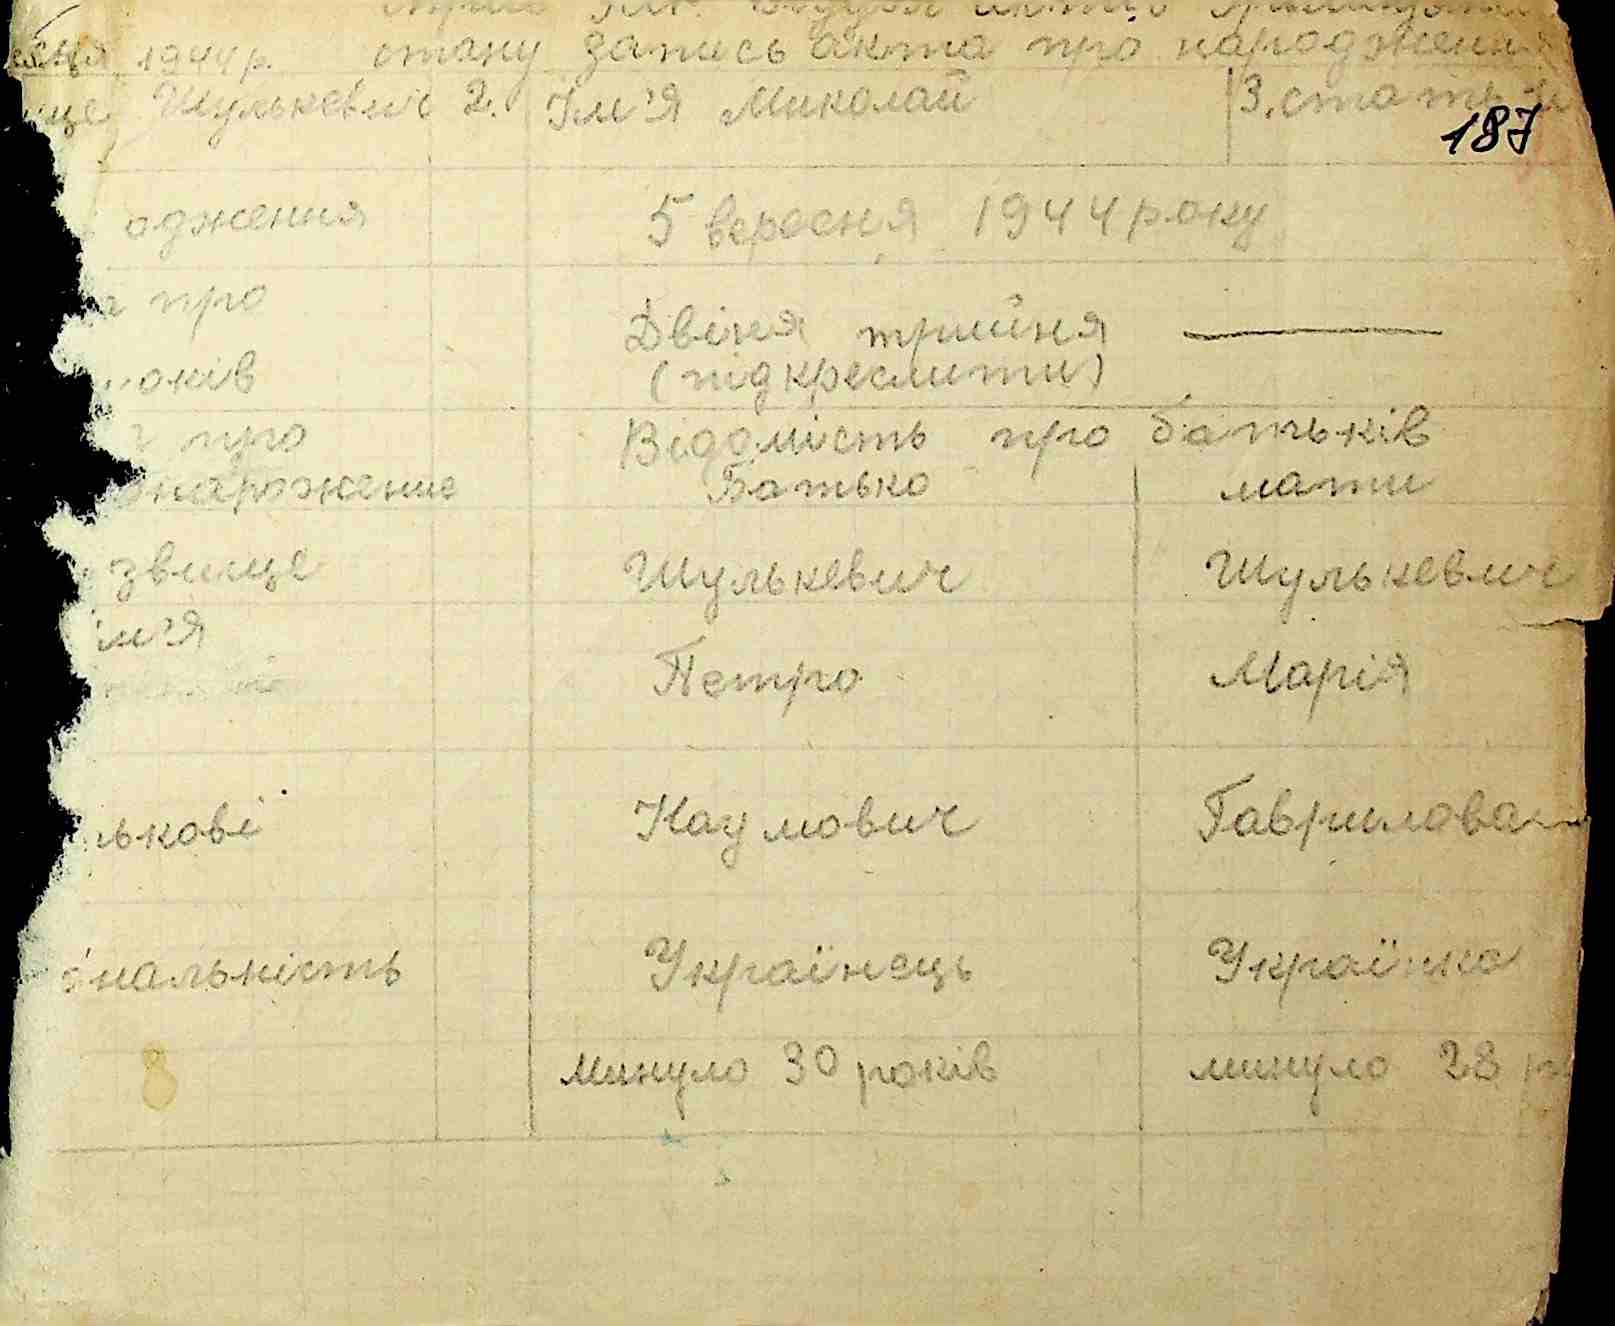 1944 р. стану запись акта про народження
ище Шулькевич 2. Ім'я Миколай 3. стать
187
одження 5 вересня 1944 року
про
Двіня трийня —
оків (підкреслити)
про Відомість про батьків
Батько мати
звище Шулькевич Шулькевич
ім'я
Петро Марія
ькові Наумович Гаврилова
нальність Українець Українка
минуло 30 років минуло 28